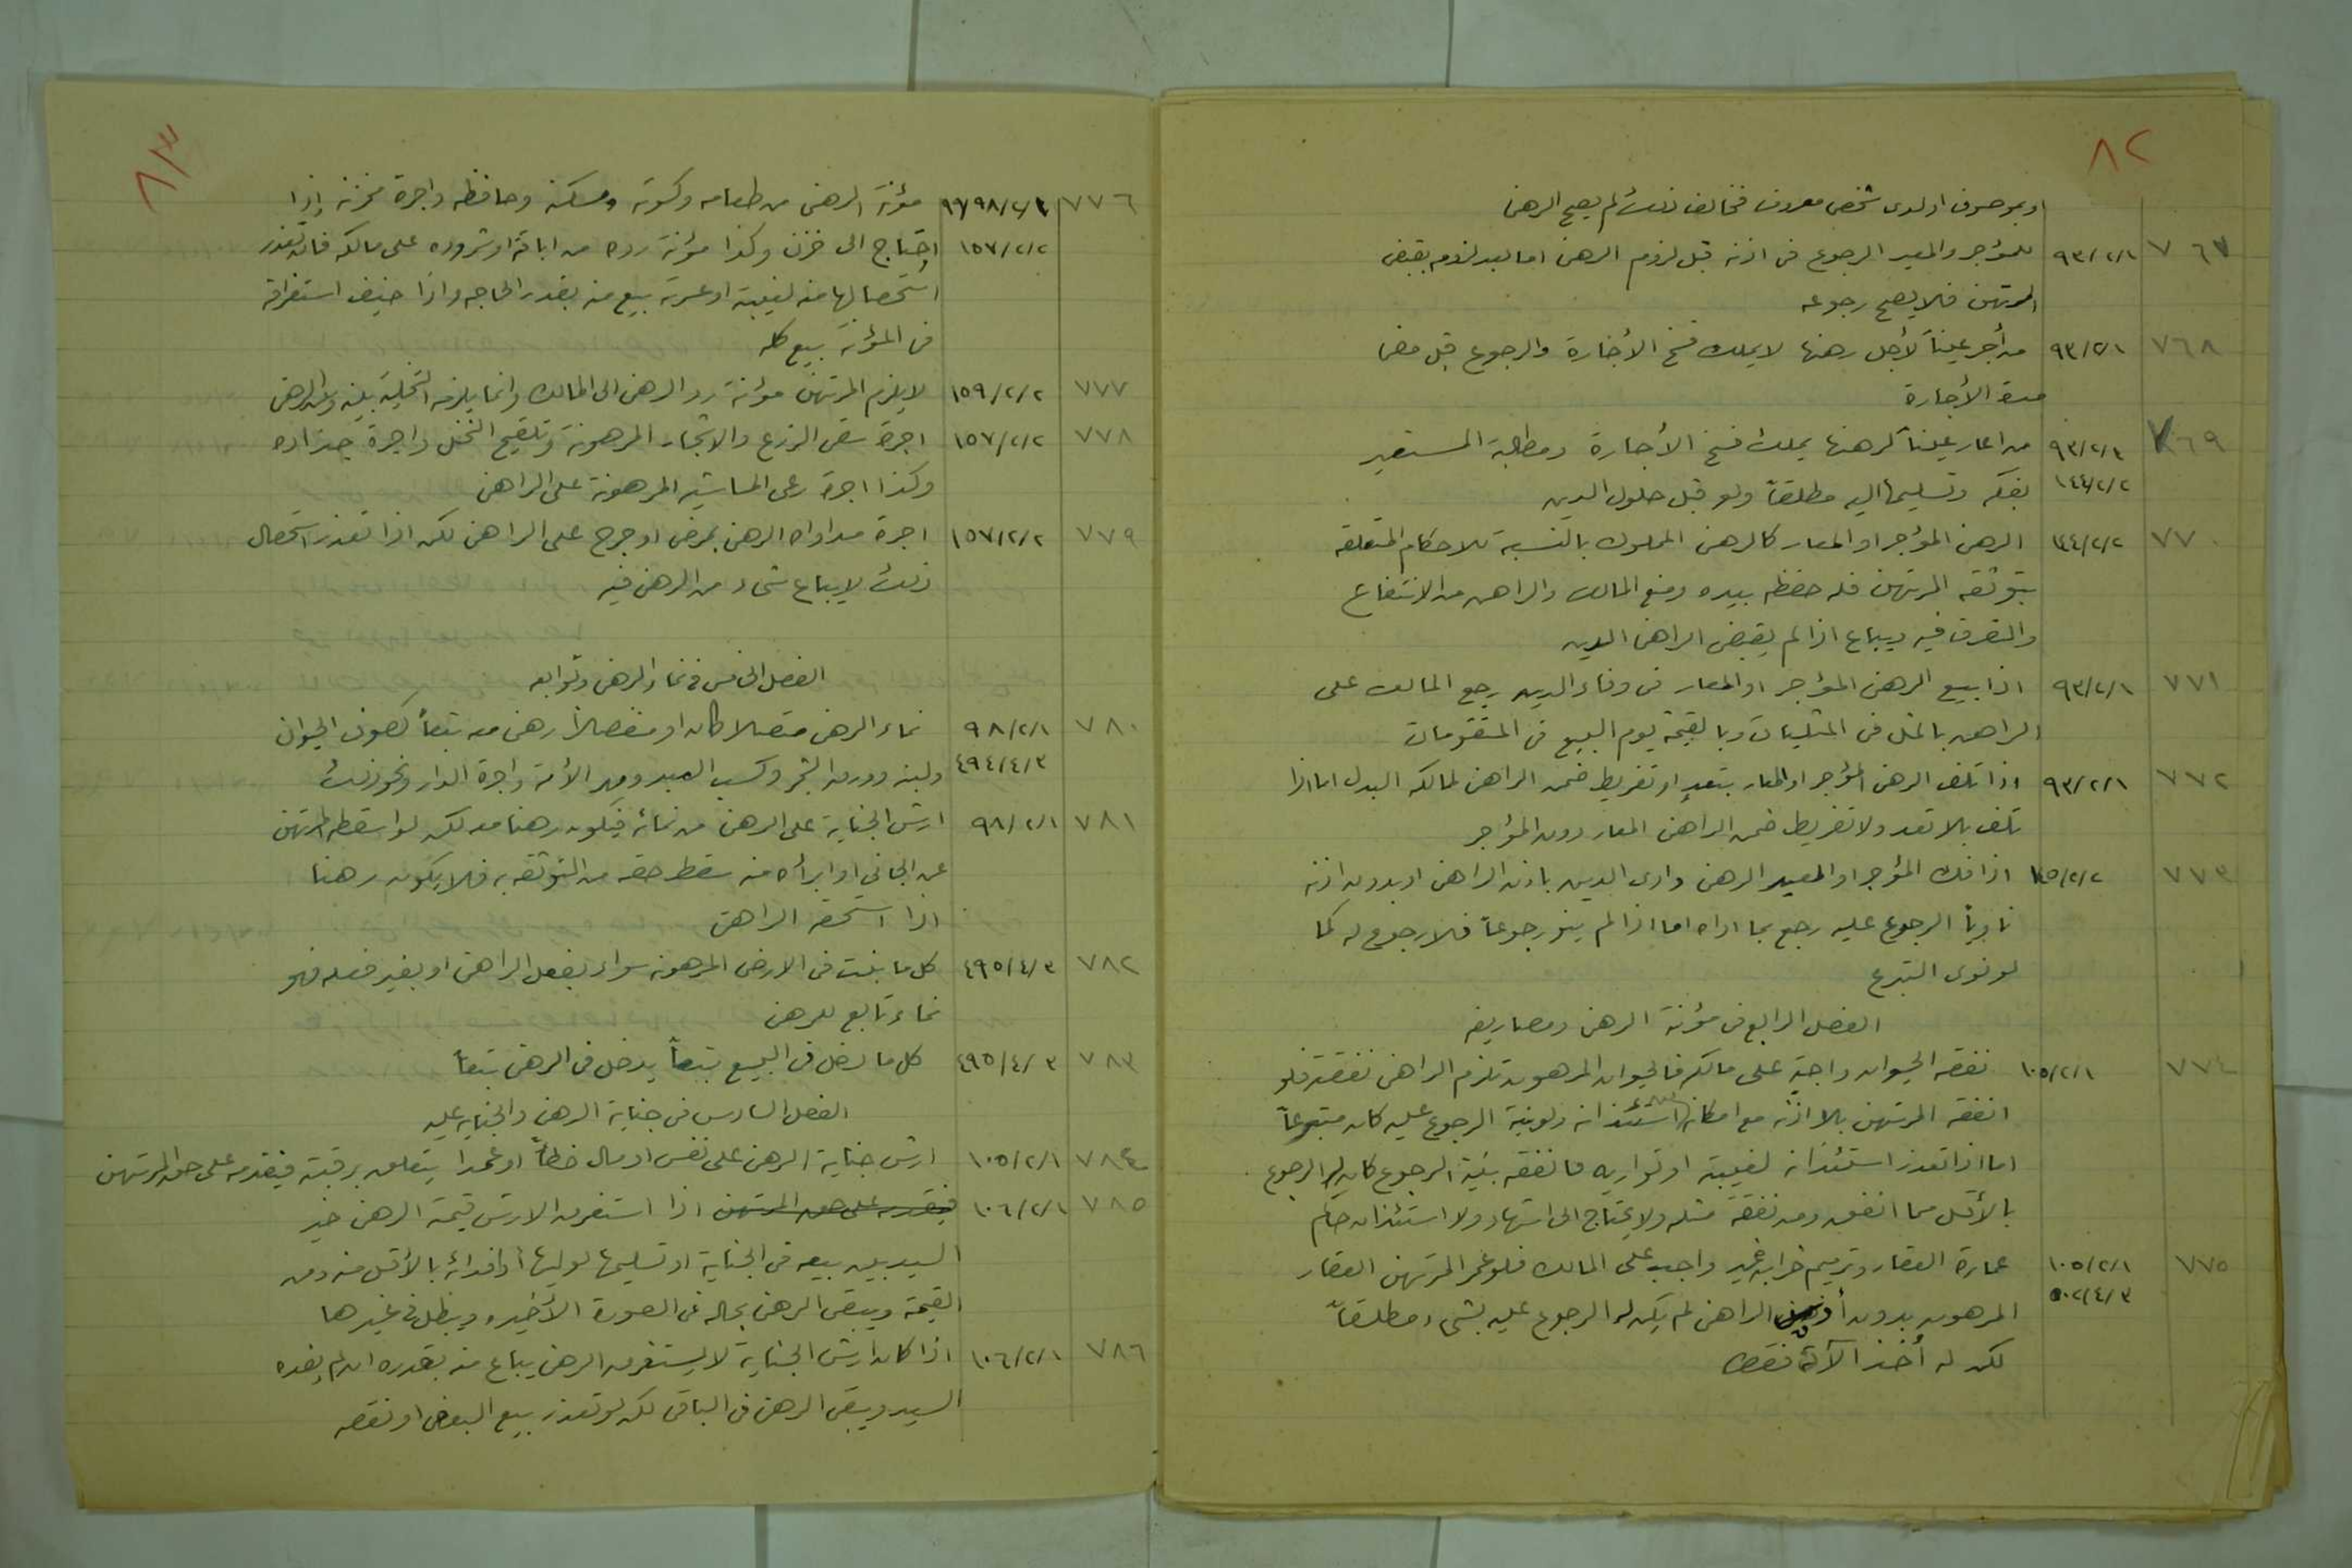 ٨٢
او بموصوف او لدى شخص معروف فخالف ذلك لم يصح الرهن
٧٦٧ ٩٣/٢/١ للمؤجر والمعير الرجوع في اذنه قبل لزوم الرهن اما بعد لزومه بقبض
المرتهن فلا يصح رجوعه
٧٦٨ ٩٣/٢/١ من أجر عيناً لأجل رهنها لا يملك فسخ الأجارة والرجوع قبل مضي
مدة الأجارة
٧٦٩ ٩٣/٢/١ من اعار عيناً لرهنها يملك فسخ الأجارة ومطالبة المستعير
١٤٤/٢/٢ بفكه وتسليمها اليه مطلقاً ولو قبل حلول الدين
٧٧٠ ١٤٤/٢/٢ الرهن المؤجر او المعار كالرهن المملوك بالنسبة للاحكام المتعلقة
بتوثقه المرتهن فله حفظه بيده ومنع المالك والراهن من الانتفاع
والتصرف فيه ويباع اذا لم يقبض الراهن الدين
٧٧١ ٩٣/٢/١ اذا بيع الرهن المؤجر او المعار في وفاء الدين رجع المالك على
الراهن بالمثل في المثليات وبالقيمة يوم البيع في المتقومات
٧٧٢ ٩٣/٢/١ اذا تلف الرهن المؤجر او المعار بتعدٍ او تفريط ضمن الراهن لمالكه البدل اما اذا
تلف بلا تعد ولا تفريط ضمن الراهن المعار دون المؤجر
٧٧٣ ١٤٥/٢/٢ اذا فك المؤجر او المعير الرهن وادى الدين باذن الراهن او بدون اذنه
ناوياً الرجوع عليه رجع بما اداه اما اذا لم ينو رجوعاً فلا رجوع له كما
لو نوى التبرع
الفصل الرابع في مؤنة الرهن ومصاريفه
٧٧٤ ١٠٥/٢/١ نفقه الحيوان واجبة على مالكه فالحيوان المرهون تلزم الراهن نفقته فلو
انفقه المرتهن بلا اذنه مع امكان استئذانه ولو بنية الرجوع عليه كان متبرعاً
اما اذا تعذر استئذانه لغيبة او تواريه فانفقه بنية الرجوع كان له الرجوع
بالأقل مما انفق ومن نفقة مثله ولا يحتاج الى اشهاد ولا استئذان حاكم
٧٧٥ ١٠٥/٢/١ عمارة العقار وترميم خرابه غير واجب على المالك فلو عمر المرتهن العقار
٥٠٢/٤/٣ المرهون بدون أذن الراهن لم يكن له الرجوع عليه بشيء مطلقاً
لكن له أخذ آلآته فقط
٨٣
٧٧٦ ٩٨/٢/١ مؤنة الرهن من طعامه وكسوته ومسكنه وحافظه واجرة مخزنه إذا
١٥٧/٢/٢ احتاج الى خزن وكذا مؤنة رده من اباقه او شروده على مالكه فان تعذر
استحصالها منه لغيبة او عسرته بيع منه بقدر الحاجه واذا خيف استغراقه
في المؤنه بيع كله
٧٧٧ ١٥٩/٢/٢ لا يلزم المرتهن مؤنة رد الرهن الى المالك وانما يلزمه التخلية بينه وبين الرهن
٧٧٨ ١٥٧/٢/٢ اجرة سقي الزرع والاشجار المرهونة وتلقيح النخل واجرة جذاذه
وكذا اجرة رعي الماشيه المرهونة على الراهن
٧٧٩ ١٥٧/٢/٢ اجرة مداواه الرهن بمرض او جرح على الراهن لكن اذا تعذر استحصال
ذلك لا يباع شيء من الرهن فيه
الفصل الخامس في نماء الرهن وتوابعه
٧٨٠ ٩٨/٢/١ نماء الرهن متصلا كان او منفصلاً رهن معه تبعاً كصوف الحيوان
٤٩٤/٤/٣ ولبنه وورق الشجر وكسب العبد ومهر الأمة واجرة الدار ونحو ذلك
٧٨١ ٩٨/٢/١ ارش الجناية على الرهن من نمائه فيكون رهنا معه لكن لو اسقطه المرتهن
عن الجاني او ابرأه منه سقط حقه من التوثقه به فلا يكون رهنا
اذا استحقه الراهن
٧٨٢ ٤٩٥/٤/٣ كل ما ينبت في الارض المرهونه سواء بفعل الراهن او بغير فعله فهو
نماء تابع للرهن
٧٨٣ ٤٩٥/٤/٣ كل ما دخل في البيع تبعاً يدخل في الرهن تبعاً
الفصل السادس في جناية الرهن والجنايه عليه
٧٨٤ ١٠٥/٢/١ ارش جناية الرهن على نفس او مال خطأً او عمدا يتعلق برقبته فيقدم على حق المرتهن
٧٨٥ ١٠٦/٢/١ فيقدم على حق المرتهن اذا استغرق الارش قيمة الرهن خير
السيد بين بيعه في الجناية او تسليمها لوليها أو فدائه بالأقل منه ومن
القيمة ويبقى الرهن بحاله في الصورة الأخيره ويبطل في غيرها
٧٨٦ ١٠٦/٢/١ اذا كان ارش الجناية لا يستغرق الرهن يباع منه بقدره ان لم يفده
السيد ويبقى الرهن في الباقي لكن لو تعذر بيع البعض او نقصه